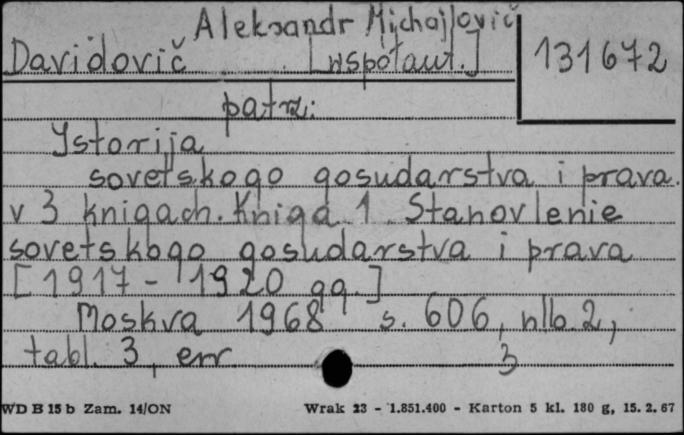 Aleksandr Michajlovič
Davidovič [współaut.] 131672
patrz:
Istorija
sovetskogo gosudarstva i prava.
v 3 knigach. Kniga 1. Stanovlenie
sovetskogo gosudarstva i prava
[1917 - 1920 gg.]
Moskva 1968 s. 606, nlb. 2,
tabl. 3, err
3
WD B 15 b Zam. 14/ON Wrak 23 - 1.851.400 - Karton 5 kl. 180 g, 15. 2. 67